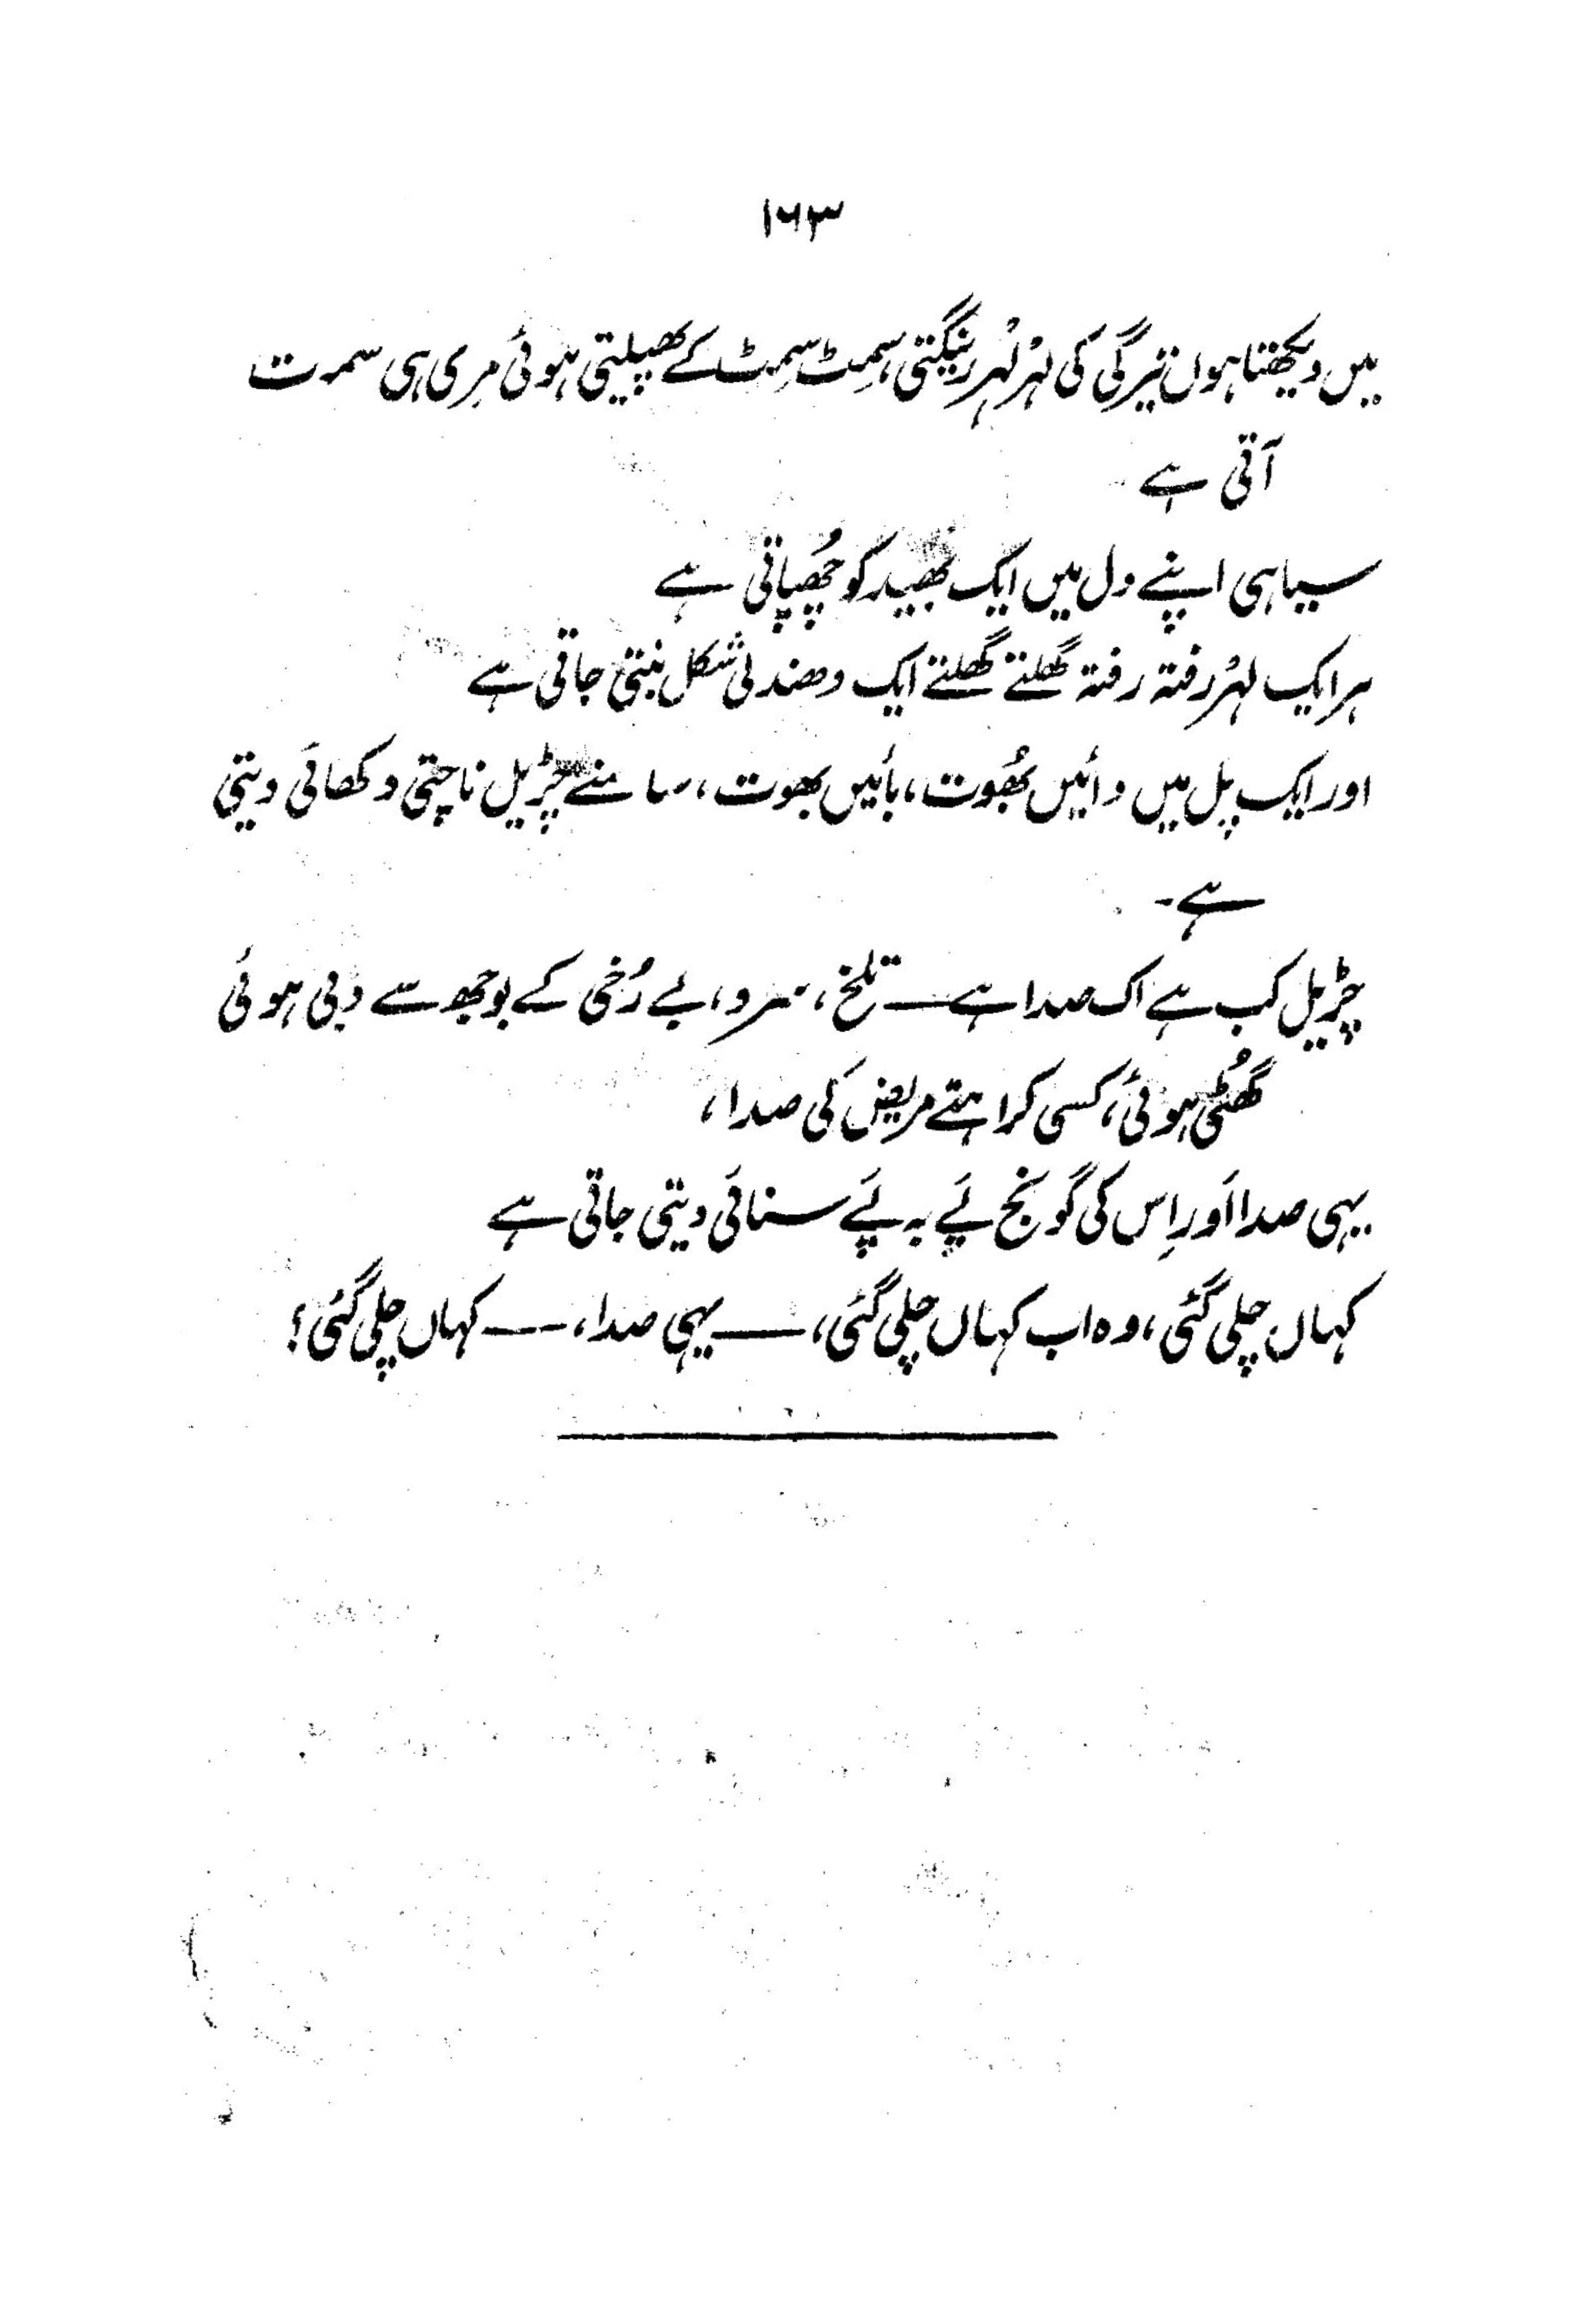 ۱۶۳
میں دیکھتا ہوں تیرگی کی لہر لہر رینگتی، سمِٹ سمِٹ کے پھیلتی ہوئی مِری ہی سمت
آتی ہے
سیاہی اپنے دل میں ایک بھید کو چُھپاتی ہے
ہر ایک لہر رفتہ رفتہ گھلتے گھلتے ایک دھندلی شکل بنتی جاتی ہے
اور ایک پل میں دائیں بھُوت، بائیں بھوت، سامنے چڑیل ناچتی دکھائی دیتی
ہے۔
چڑیل کب ہے اک صدا ہے ــــ تلخ، سرد، بے رُخی کے بوجھ سے دبی ہوئی
گھُٹی ہوئی، کسی کراہتے مریض کی صدا،
یہی صدا اَور اِس کی گونج پَے بہ پَے سنائی دیتی جاتی ہے
کہاں چلی گئی، وہ اب کہاں چلی گئی، ــــ یہی صدا، ــــ کہاں چلی گئی؟